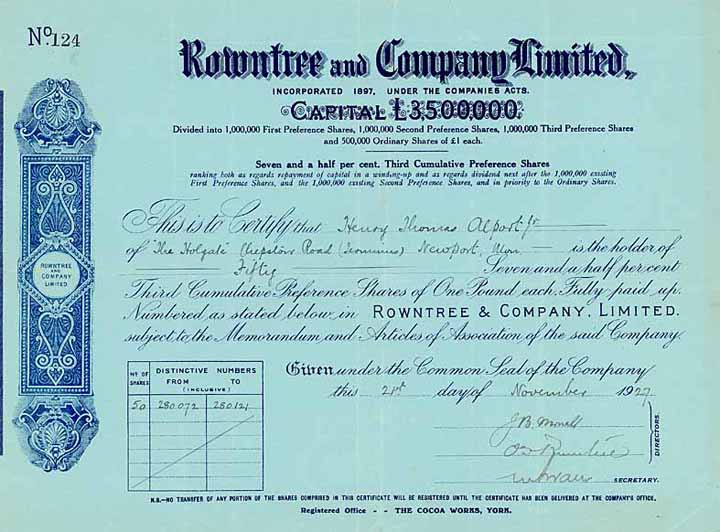 No. 124
Rowntree and Company Limited,
INCORPORATED 1897, UNDER THE COMPANIES ACTS.
CAPITAL £3,500,000.
Divided into 1,000,000 First Preference Shares, 1,000,000 Second Preference Shares, 1,000,000 Third Preference Shares
and 500,000 Ordinary Shares of £1 each.
Seven and a half per cent. Third Cumulative Preference Shares
ranking both as regards repayment of capital in a winding-up and as regards dividend next after the 1,000,000 existing
First Preference Shares, and the 1,000,000 existing Second Preference Shares, and in priority to the Ordinary Shares.
This is to Certify that Henry Thomas Alport Jr
of "The Holgate" Chepstow Road (Terminus) Newport, Mon. is the holder of
Fifty Seven and a half per cent
Third Cumulative Preference Shares of One Pound each. Fully paid up.
Numbered as stated below in ROWNTREE & COMPANY, LIMITED.
subject to the Memorandum and Articles of Association of the said Company.
ROWNTREE
AND
COMPANY
LIMITED
No OF SHARES
DISTINCTIVE NUMBERS
FROM TO
(INCLUSIVE)
50 280,072 280,121
Given under the Common Seal of the Company
this 21st day of November 1927
DIRECTORS.
SECRETARY.
N.B.—NO TRANSFER OF ANY PORTION OF THE SHARES COMPRISED IN THIS CERTIFICATE WILL BE REGISTERED UNTIL THE CERTIFICATE HAS BEEN DELIVERED AT THE COMPANY'S OFFICE.
Registered Office - - THE COCOA WORKS, YORK.